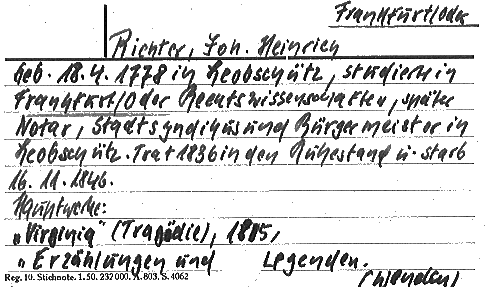 Frankfurt/Oder
Richter, Joh. Heinrich
Geb. 18.4. 1778 in Leobschütz, studierte in
Frankfurt/Oder Rechtswissenschaften, später
Notar, Stadtsyndikus und Bürgermeister in
Leobschütz. Trat 1836 in den Ruhestand u. starb
16. 11. 1846.
Hauptwerke:
„Virginia" (Tragödie), 1805,
„Erzählungen und Legenden.
(Wenden)
Reg. 10. Stichnote. 1. 50. 232 000. A. 803. S. 4062